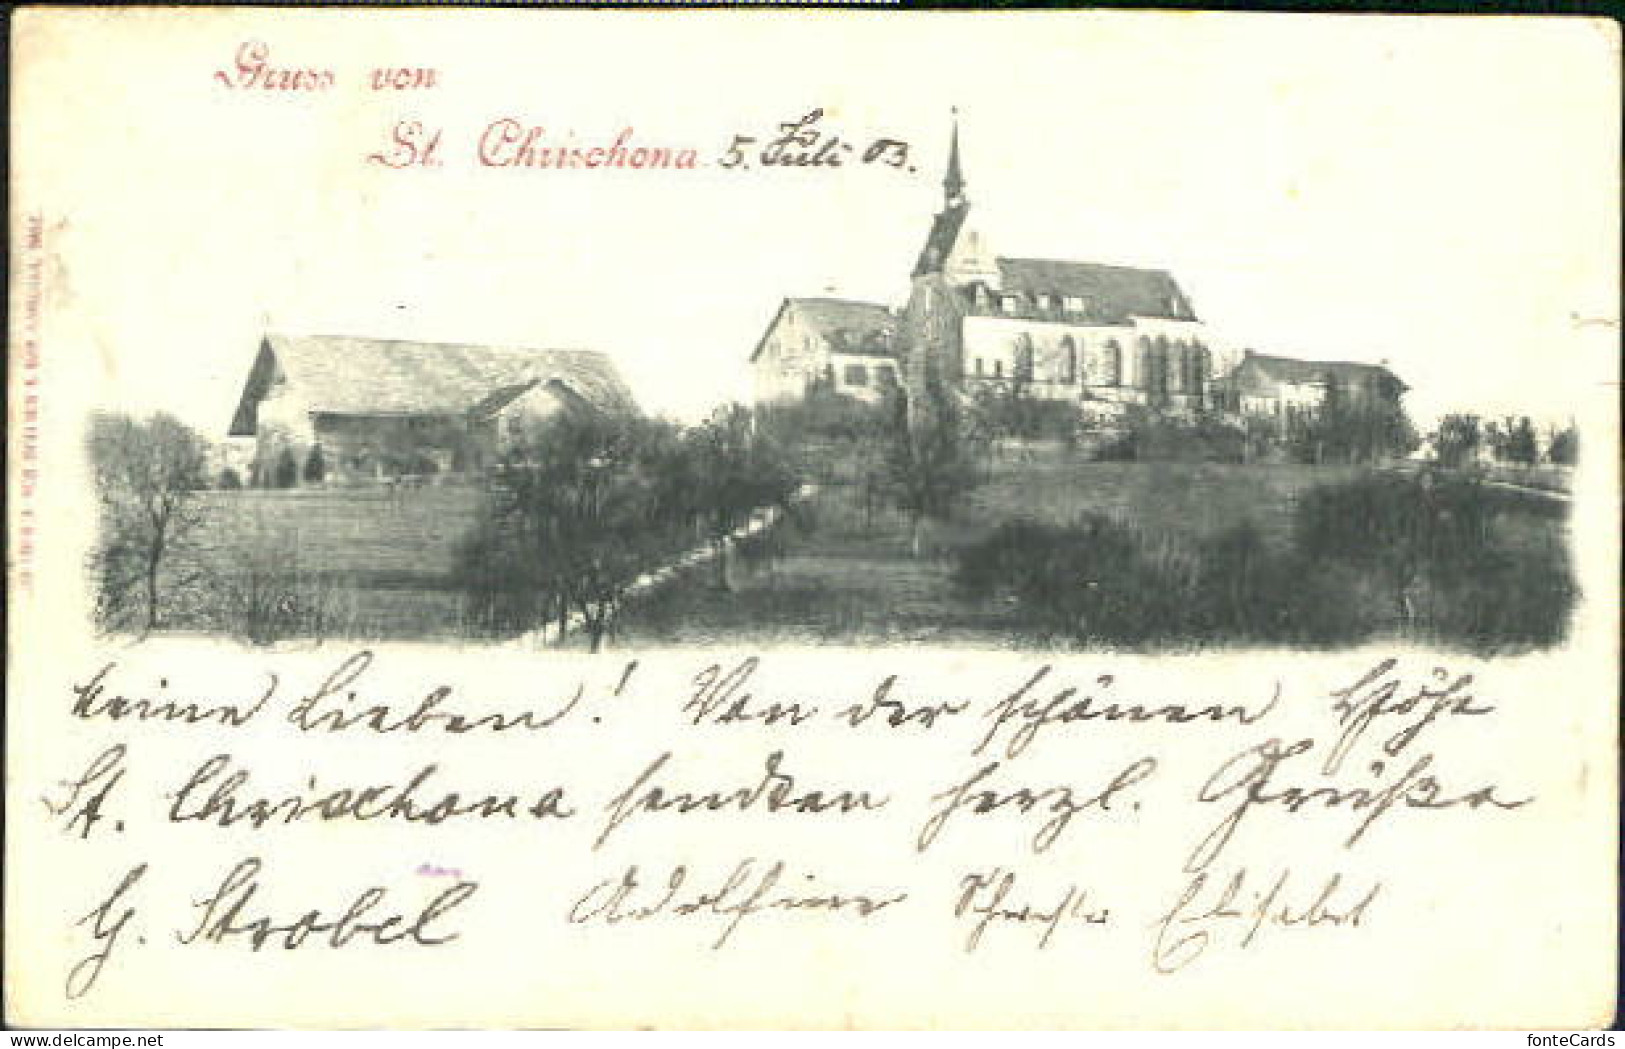 Gruss von
St. Chrischona 5. Juli 03.
Meine Lieben! Von der schönen Höhe
St. Chrischona senden herzl. Grüße
G. Strobel Adolfine Schwester Elisabet
www.delcampe.net
fonteCards